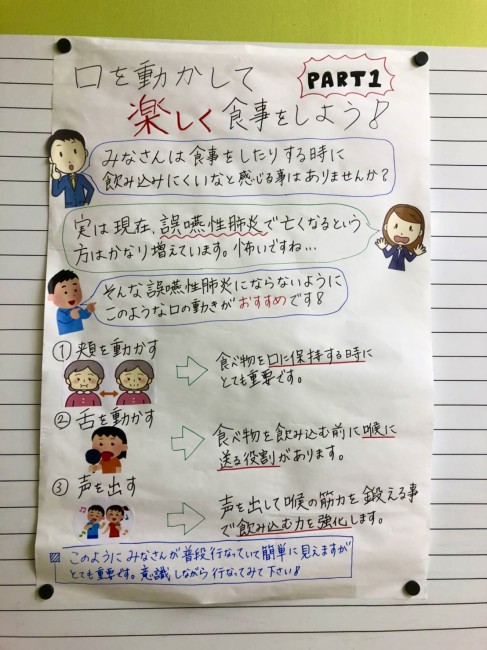 口を動かして
PART1
楽しく食事をしよう!
みなさんは食事をしたりする時に
飲み込みにくいなと感じる事はありませんか?
実は現在、誤嚥性肺炎で亡くなるという
方はかなり増えています。怖いですね…
そんな誤嚥性肺炎にならないように
このような口の動きがおすすめです!
① 頬を動かす
食べ物を口に保持する時に
とても重要です。
② 舌を動かす
食べ物を飲み込む前に喉に
送る役割があります。
③ 声を出す
声を出して喉の筋力を鍛える事
で飲み込む力を強化します。
このようにみなさんが普段行なっていて簡単に見えますが
とても重要です。意識しながら行なってみて下さい!